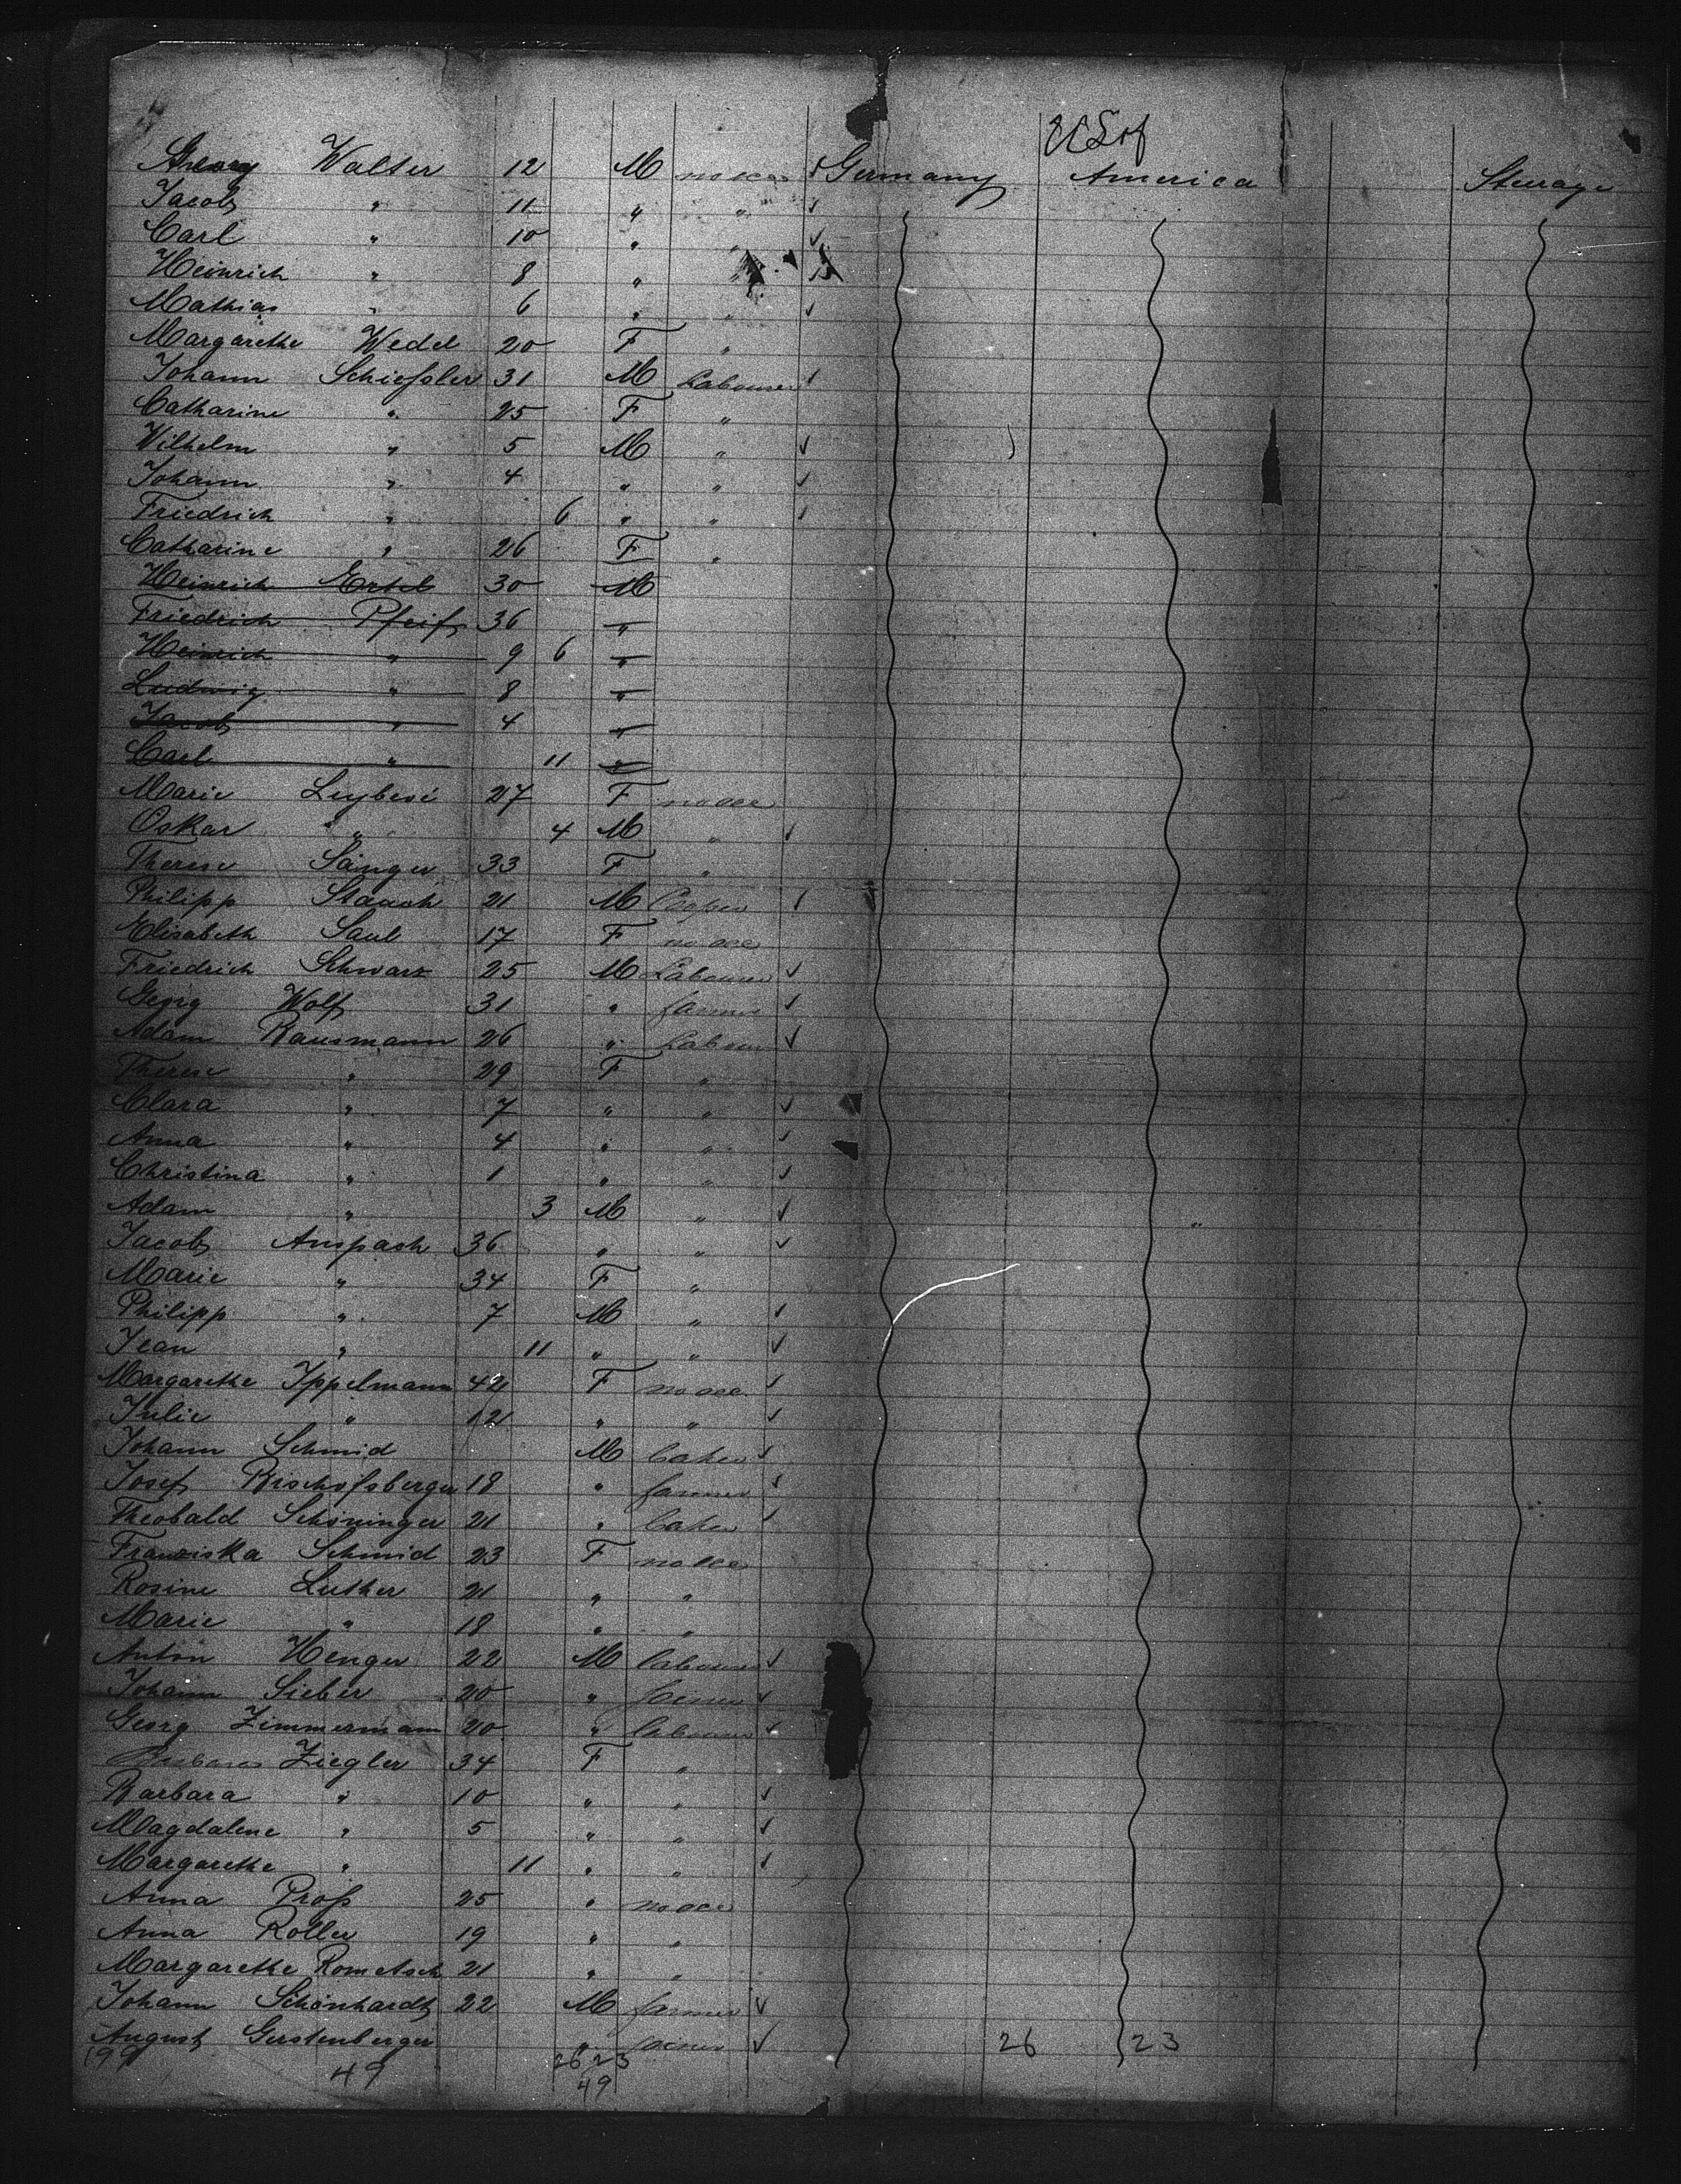 U S of
Georg Walter 12 M no occ ✓ Germany America Steerage
Jacob " 11 " " ✓
Carl " 10 " " ✓
Heinrich " 8 " "
Mathias " 6 " " ✓
Margarethe Wedel 20 F "
Johann Schiessler 31 M Labourer ✓
Catharine " 25 F "
Wilhelm " 5 M " ✓
Johann " 4 " " ✓
Friedrich " 6 " " ✓
Catharine " 26 F "
Heinrich Ertel 30 M
Friedrich Pfeif 36 "
Heinrich " 9 6 "
Ludwig " 8 "
Jacob " 4 "
Carl " 11 "
Marie 27 F no occ
Oskar " 4 M " ✓
Therese Sänger 33 F "
Philipp Staach 21 M ✓
Elisabeth Saul 17 F no occ
Friedrich Schwarz 25 M Labourer ✓
Georg Wolf 31 " farmer ✓
Adam Bausmann 26 " Labour ✓
Therese " 29 F "
Clara " 7 " " ✓
Anna " 4 " " ✓
Christina " 1 " " ✓
Adam " 3 M " ✓
Jacob Anspach 36 " " ✓
Marie " 34 F "
Philipp " 7 M " ✓
Jean " 11 " " ✓
Margarethe Ippelmann 42 F no occ ✓
Julie " 12 " " ✓
Johann Schmid M baker ✓
Josef Bischofsberger 18 " farmer ✓
Theobald Schöninger 21 " baker ✓
Franziska Schmid 23 F no occ
Rosine Luther 21 " "
Marie " 18 " "
Anton Henger 22 M labourer ✓
Johann Sieber 20 " ✓
Georg Zimmermann 20 " labourer ✓
Barbara Ziegler 34 F "
Barbara " 10 " " ✓
Magdalene " 5 " " ✓
Margarethe " 11 " " ✓
Anna Pross 25 " no occ
Anna Roller 19 " "
Margarethe Rometsch 21 " "
Johann Schönhardt 22 M farmer ✓
August Gerstenberger " ✓ 26 23
199 49 26 23
49